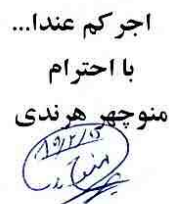 اجرکم عندا...
با احترام
منوچهر هرندی